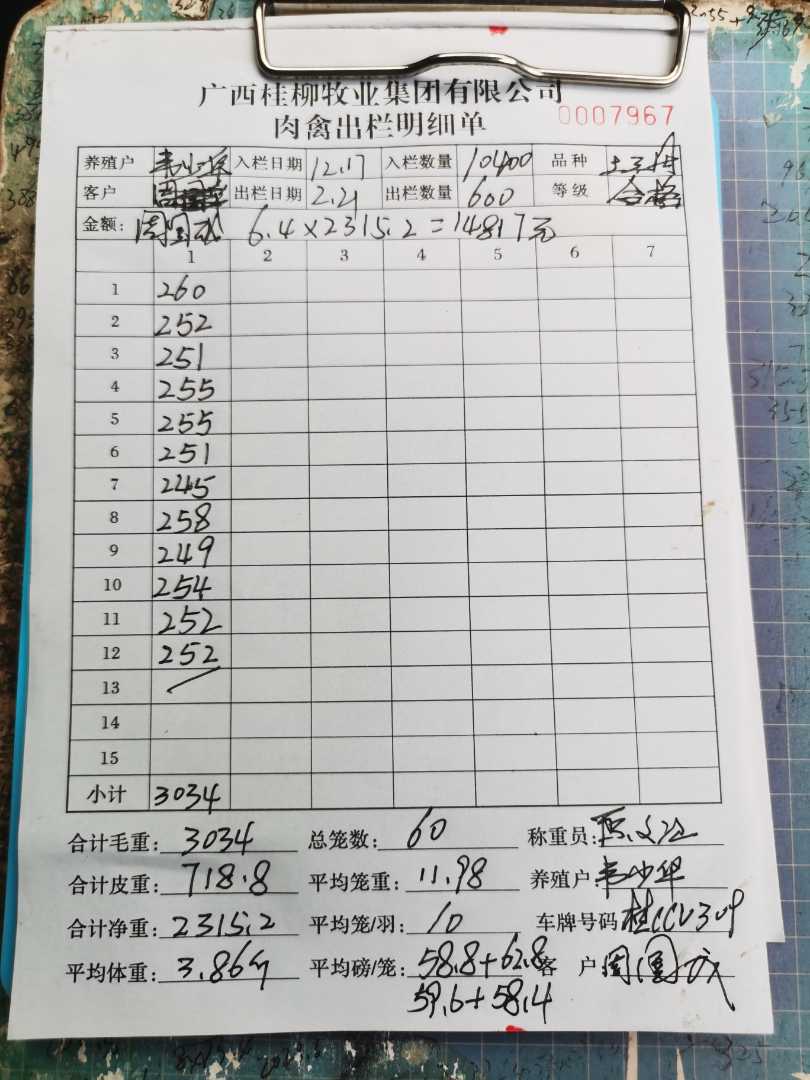 广西桂柳牧业集团有限公司
肉禽出栏明细单 0007967
养殖户 入栏日期 12.17 入栏数量 10400 品种
客户 出栏日期 2.21 出栏数量 600 等级 合格
金额: 周国成 6.4×2315.2=14817元
1 2 3 4 5 6 7
1 260
2 252
3 251
4 255
5 255
6 251
7 245
8 258
9 249
10 254
11 252
12 252
13
14
15
小计 3034
合计毛重: 3034 总笼数: 60 称重员:
合计皮重: 718.8 平均笼重: 11.98 养殖户
合计净重: 2315.2 平均笼/羽: 10 车牌号码
平均体重: 3.86斤 平均磅/笼: 58.8+62.8 客 户 周国成
59.6+58.4